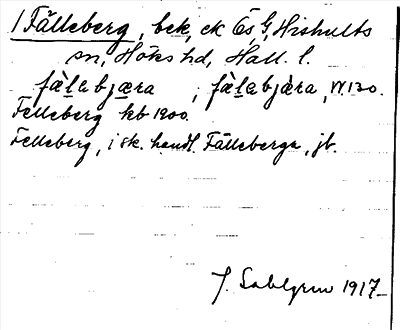 / Fälleberg, bek, ek Ös G, Hishults
sn, Höks hd, Hall. l.
fàl̲a̲bjæra ; fàl̲a̲bjàra, W 130.
Felleberg kb 1900.
Felleberg, i sk. handl. Fälleberga, jb.
J. Sahlgren 1917